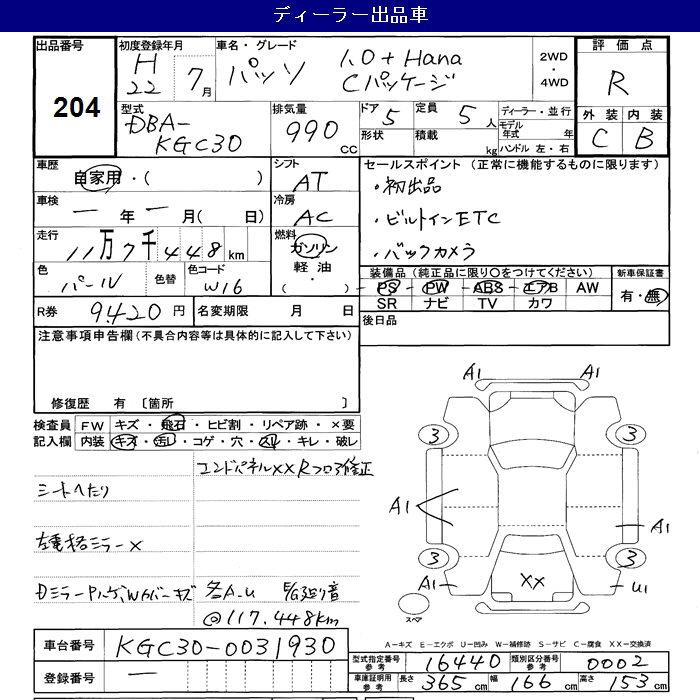 ディーラー出品車
出品番号 初度登録年月 車名・グレード 2WD・4WD 評価点
204 H22年 7月 パッソ 1.0 + Hana Cパッケージ R
型式 排気量 ドア 定員 ディーラー・並行 外装 内装
DBA-KGC30 990 CC 5 5人 モデル年式 年 C B
形状 積載 kg ハンドル 左・右
車歴 シフト セールスポイント (正常に機能するものに限ります)
自家用・( ) AT ・初出品
車検 冷房 ・ビルトインETC
一年一月( 日) AC ・バックカメラ
走行 燃料
11万7千448km ガソリン
色 色替 色コード 軽油・ 装備品(純正品に限り○をつけてください) 新車保証書
パール W16 ( ) PS・PW・ABS・エアB AW 有・無
SR ナビ TV カワ
R券 9420円 名変期限 月 日 後日品
注意事項申告欄(不具合内容等は具体的に記入して下さい)
修復歴 有 〔箇所 〕
検査員 FW キズ・飛石・ヒビ割・リペア跡・×要
記入欄 内装 キズ・汚レ・コゲ・穴・スレ・キレ・破レ
コンドパネルXX Rフロア修正
シートヘたり
ミラー×
各A.U
@117.448km
A1 A1
3 3
A1 A1
3 3
A1 XX U1
スペア
A-キズ E-エクボ U-凹み W-補修跡 S-サビ C-腐食 XX-交換済
車台番号 KGC30-0031930
型式指定番号 参考 16440 類別区分番号 参考 0002
登録番号 一
車庫証明用 参考 長さ 365cm 幅 166cm 高さ 153cm